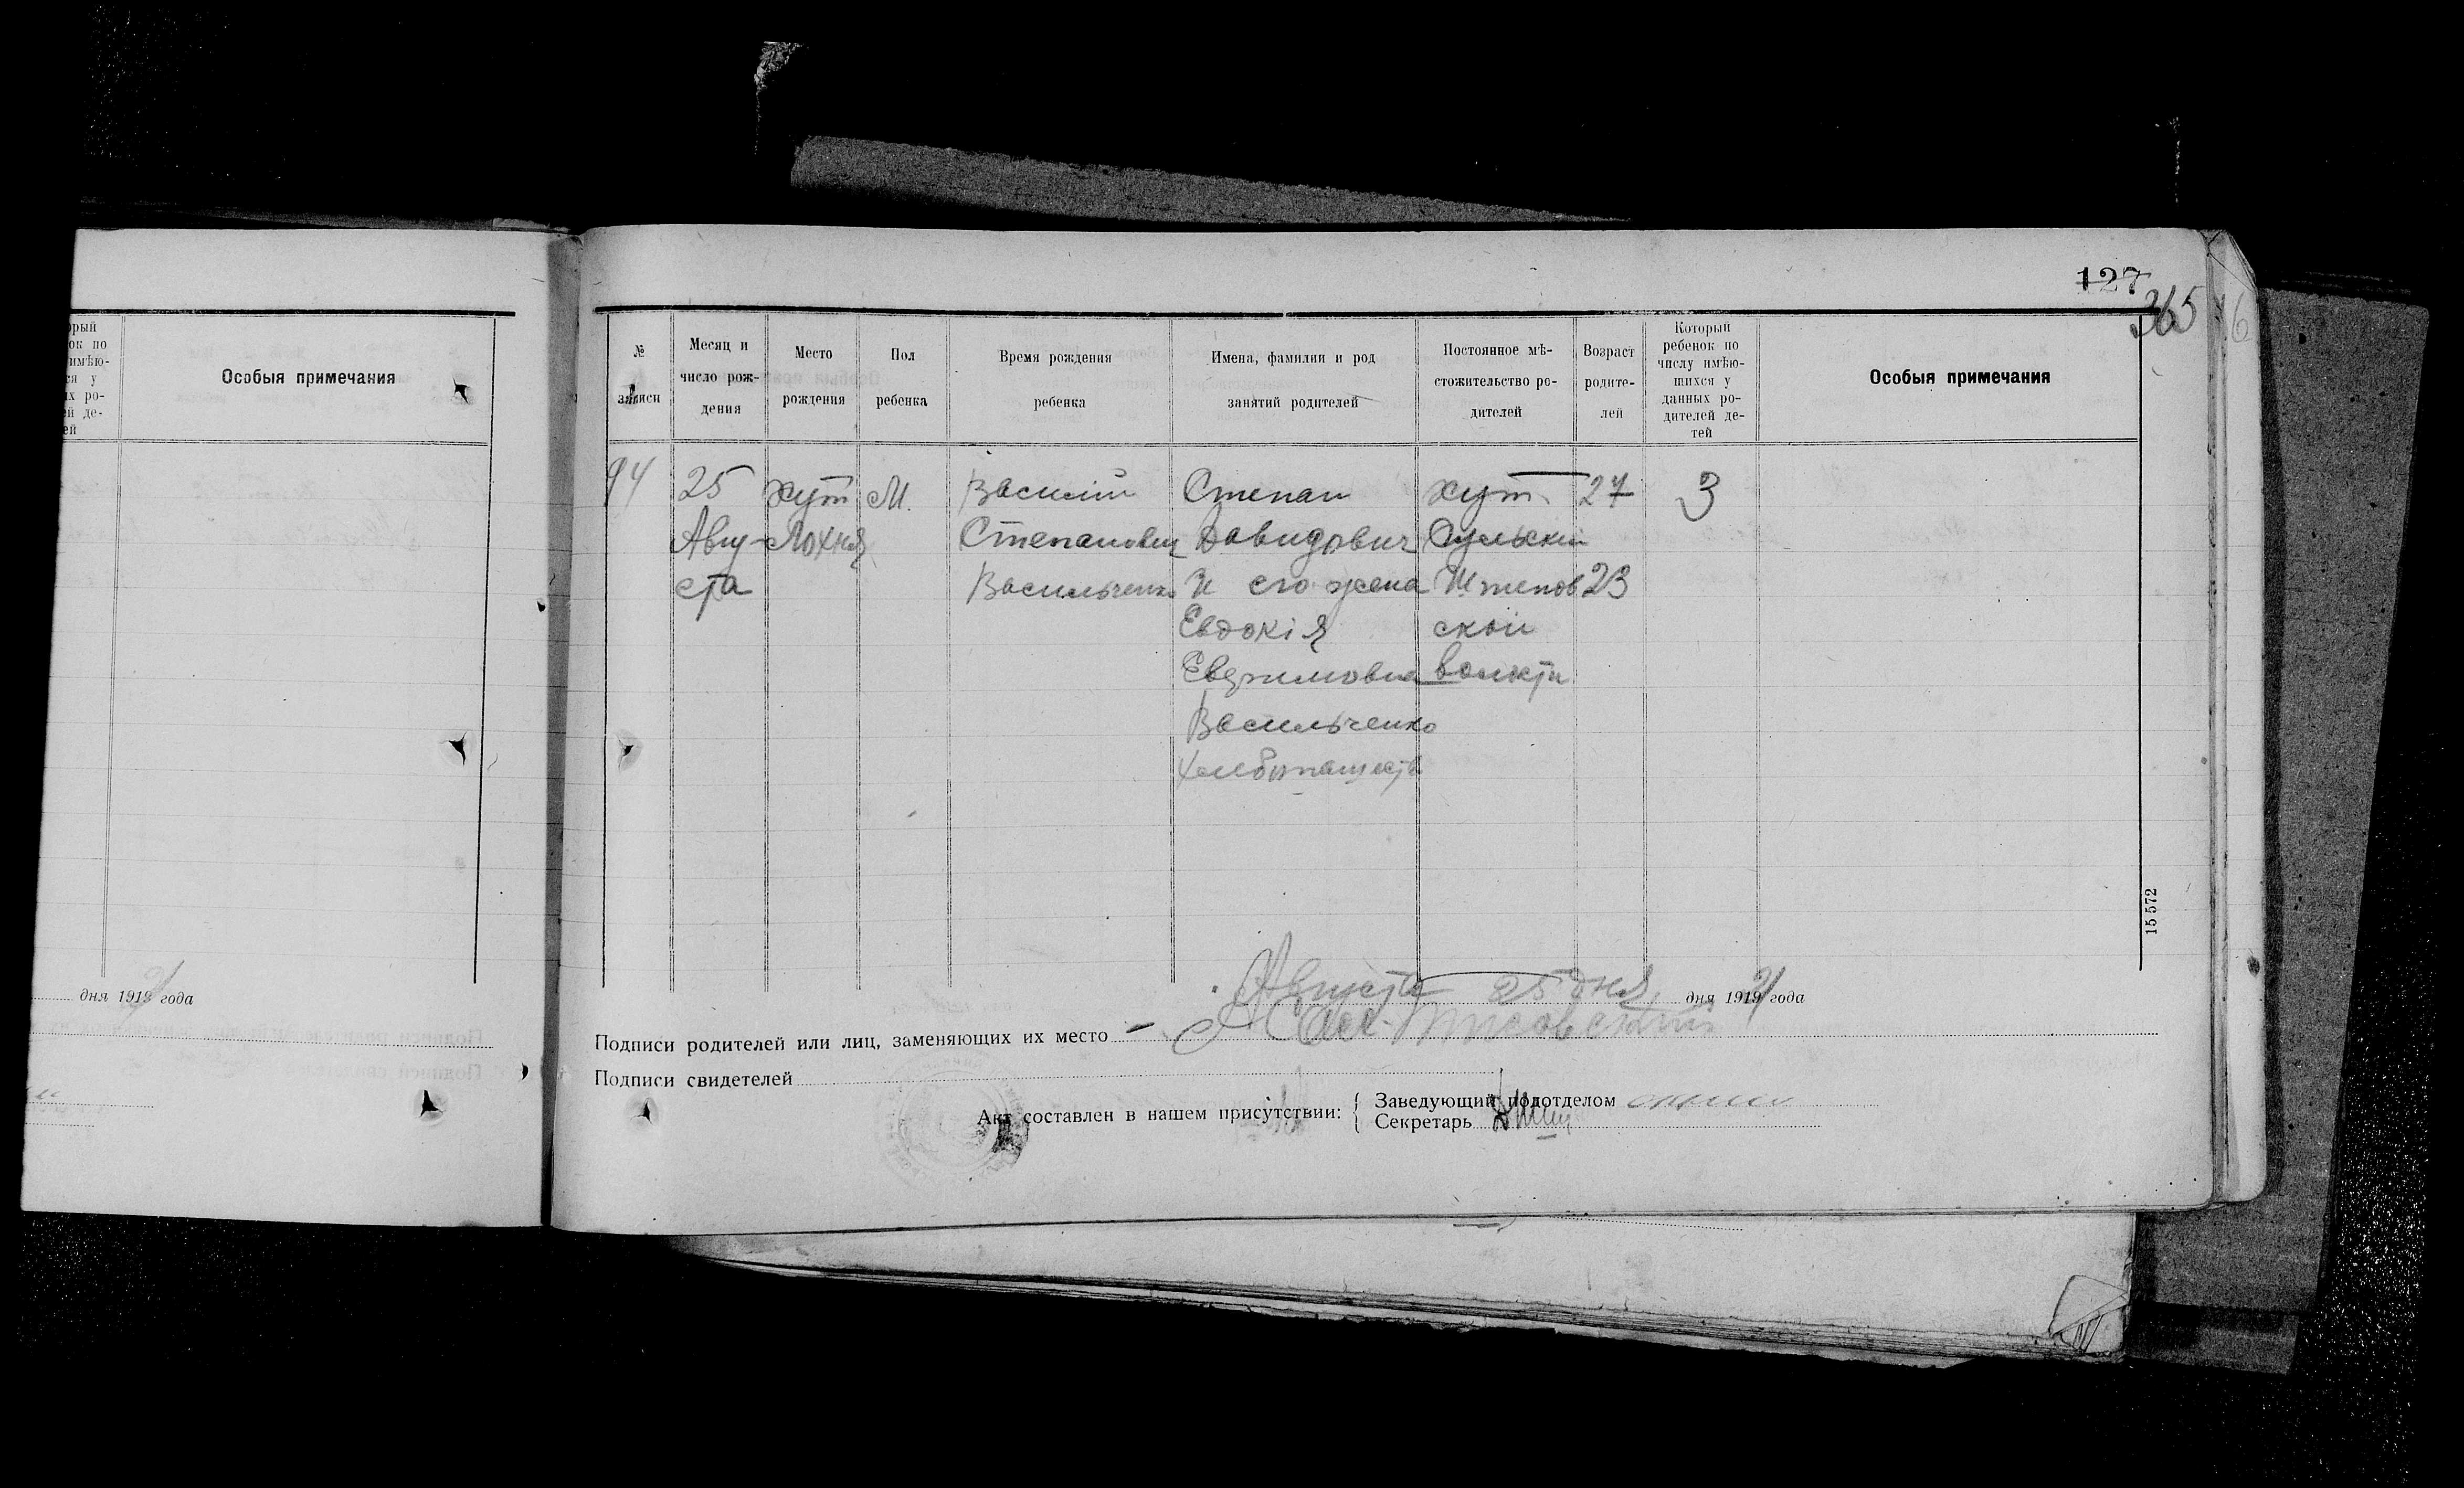 127
365
орый
ок по
имѣю-
ся у
ых ро-
ей де-
ей
Особыя примечания
дня 1919 года
№
записи
Месяц и
число рож-
дения
Место
рождения
Пол
ребенка
Время рождения
ребенка
Имена, фамилии и род
занятий родителей
Постоянное мѣ-
стожительство ро-
дителей
Возраст
родите-
лей
Который
ребенок по
числу имѣю-
щихся у
данных ро-
дителей де-
тей
Особыя примечания
94
25
Авгу-
ста
хут
Лохня
М.
Василий
Степанович
Васильченко
Степан
Давидович
и его жена
Евдокія
Васильченко
хут.
ской
волости
27
23
3
15 572
Августа 25 дня дня 1919 года
Подписи родителей или лиц, заменяющих их место
Подписи свидетелей
Акт составлен в нашем присутствии:
Заведующий подотделом
Секретарь